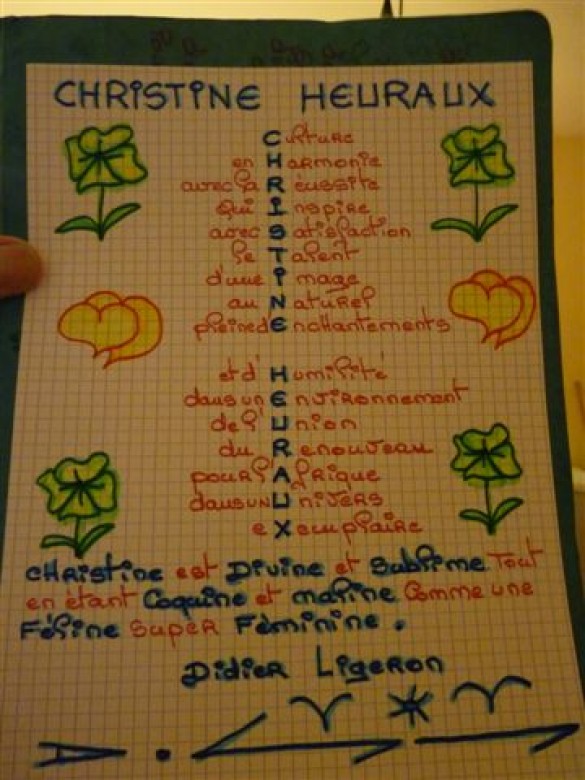 CHRISTINE HEURAUX
Culture
en Harmonie
avec la Réussite
Qui Inspire
avec Satisfaction
le Talent
d'une Image
au Naturel
pleined'Enchantements
et d'Humilité
dans un Environnement
de l'Union
du Renouveau
pour l'Afrique
dans un Univers
eXemplaire
CHRISTINE est Divine et Sublime Tout
en étant Coquine et maline Comme une
Féline Super Féminine.
Didier Ligeron